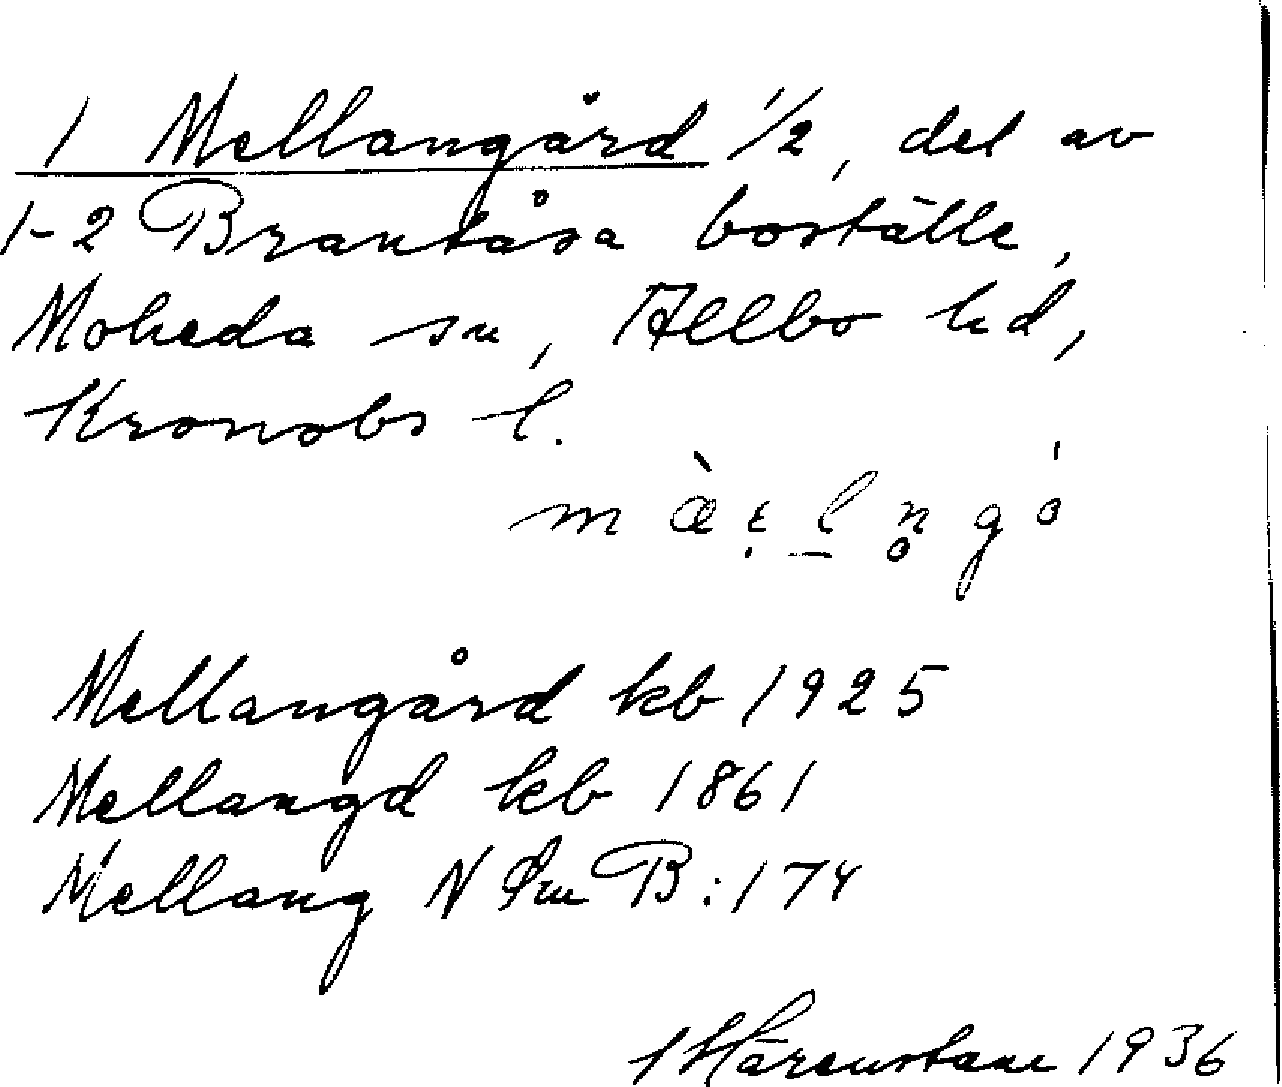 1 Mellangård 1/2, del av
1-2 Brantåsa boställe,
Moheda sn, Allbo hd,
Kronobs l.
Mellangård kb 1925
Mellangd kb 1861
Mellang N Sm B:174
Hårenstam 1936